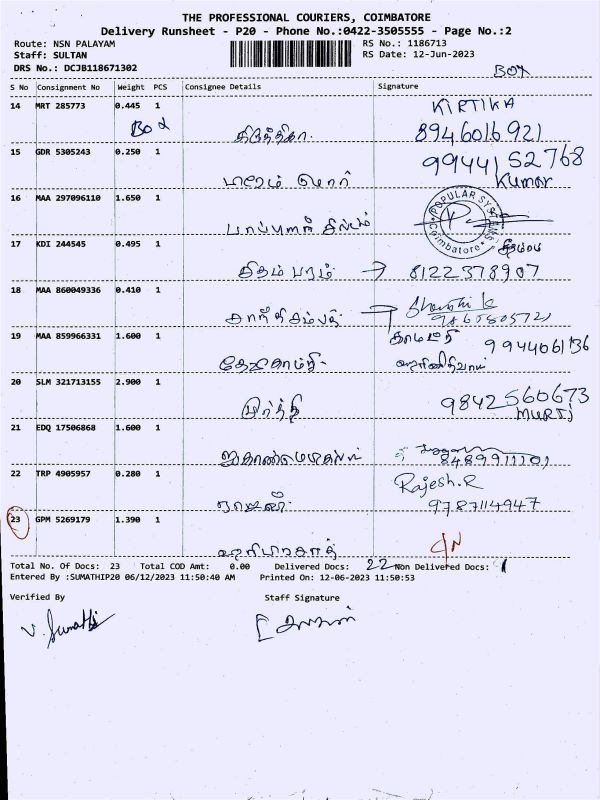 THE PROFESSIONAL COURIERS, COIMBATORE
Delivery Runsheet - P20 - Phone No.:0422-3505555 - Page No.:2
Route: NSN PALAYAM RS No.: 1186713
Staff: SULTAN RS Date: 12-Jun-2023
DRS No.: DCJB118671302
BOX
S No Consignment No Weight PCS Consignee Details Signature
14 MRT 285773 0.445 1 KIRTIKA
Box கிருத்திகா. 8946016921
15 GDR 5305243 0.250 1 9944152768
Kumar
16 MAA 297096110 1.650 1 POPULAR SYSTEMS Coimbatore
17 KDI 244545 0.495 1
சிதம்பரம் → 8122378907
18 MAA 860049336 0.410 1
19 MAA 859966331 1.600 1 9944061136
20 SLM 321713155 2.900 1 9842560673
மூர்த்தி MURTJ
21 EDQ 17506868 1.600 1
8489911101
22 TRP 4905957 0.280 1 Rajesh.R
9787114947
23 GPM 5269179 1.390 1
C/N
Total No. Of Docs: 23 Total COD Amt: 0.00 Delivered Docs: 22 Non Delivered Docs: 1
Entered By :SUMATHIP20 06/12/2023 11:50:40 AM Printed On: 12-06-2023 11:50:53
Verified By Staff Signature
V. Sumathi